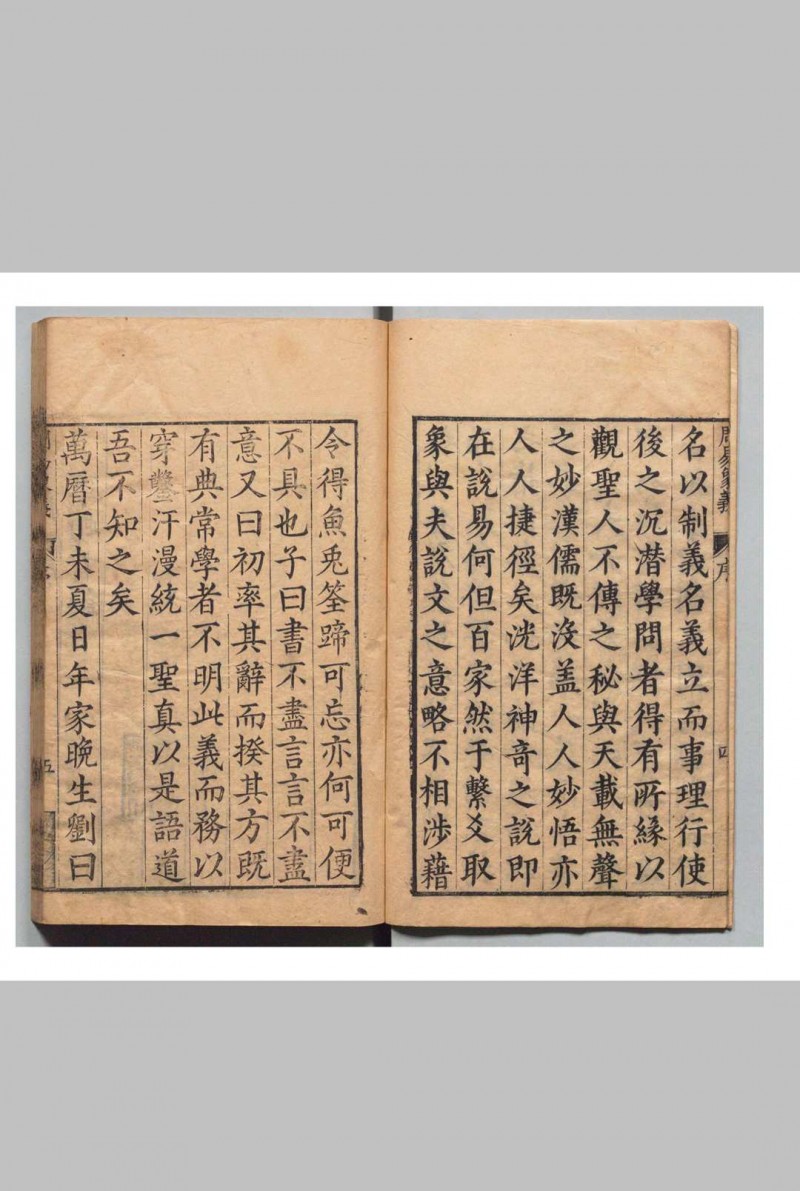 周易象義 序 四
名以制義名義立而事理行使
後之沉潜學問者得有所緣以
觀聖人不傳之秘與天載無聲
之妙漢儒既沒盖人人妙悟亦
人人捷徑矣洸洋神奇之說即
在說易何但百家然于繫爻取
象與夫說文之意略不相涉藉
令得魚兎筌蹄可忘亦何可便
不具也子曰書不盡言言不盡
意又曰初率其辭而揆其方既
有典常學者不明此義而務以
穿鑿汗漫統一聖真以是語道
吾不知之矣
萬曆丁未夏日年家晚生劉曰
五